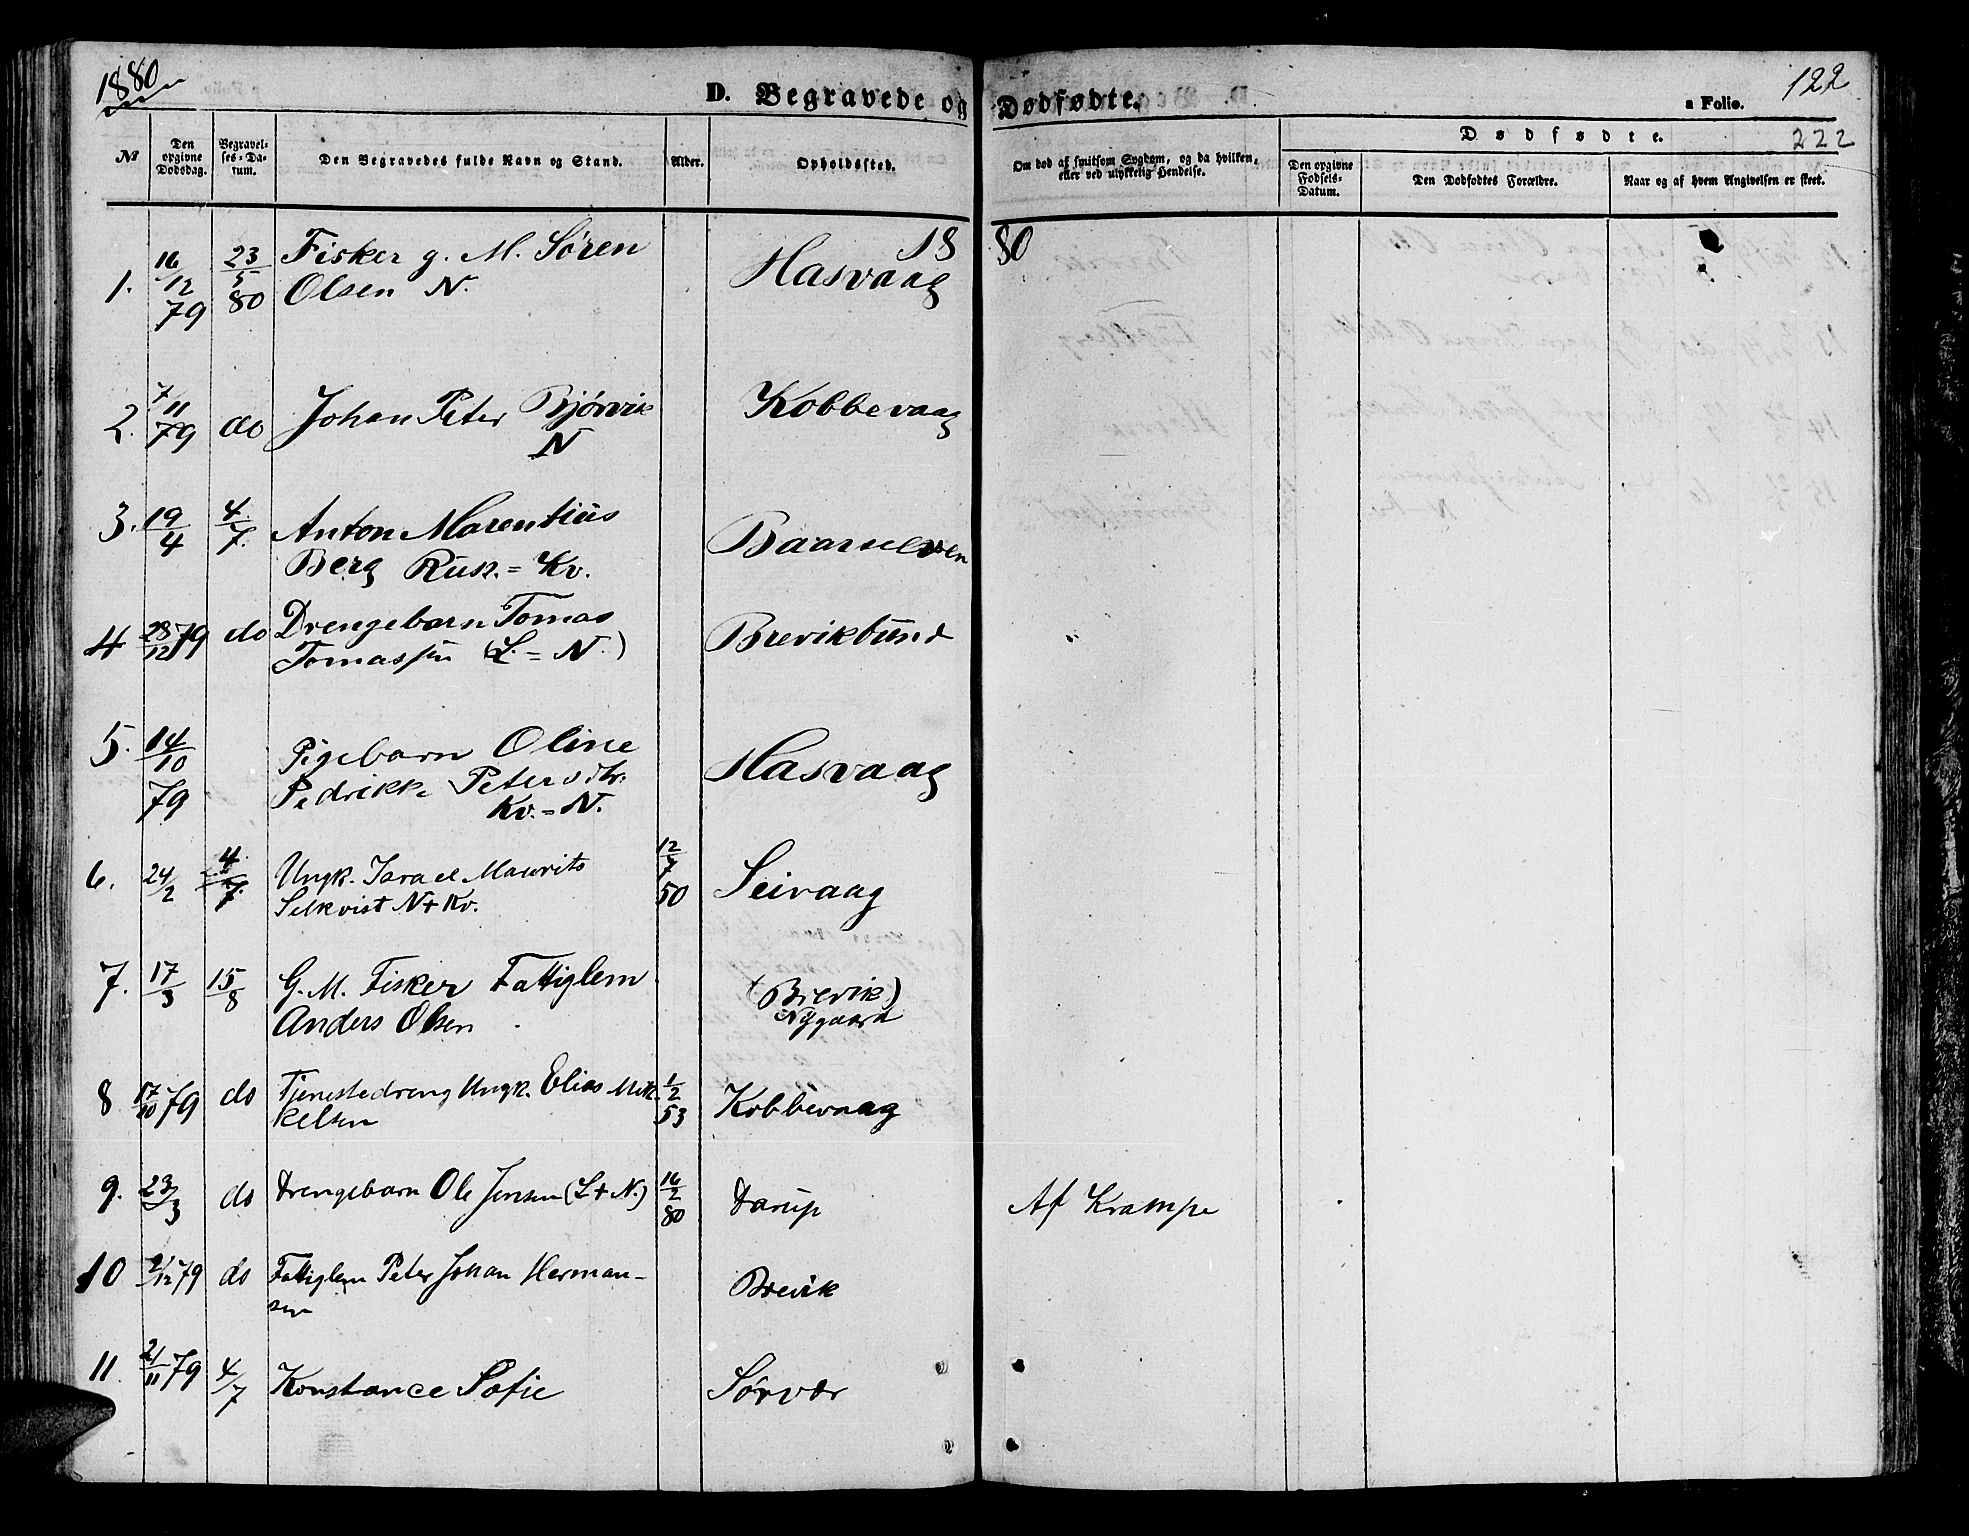 1880
D. Begravede og Dødfødte.
a Folio.
122
222
№
Den opgivne Dødsdag.
Begravelses-Datum.
Den Begravedes fulde Navn og Stand.
Alder.
Opholdssted.
Om død af smitsom Sygdom, og da hvilken, eller ved ulykkelig Hendelse.
Dødfødte.
Den opgivne Fødsels-Datum.
Den Dødfødtes Forældre.
Naar og af hvem Angivelsen er skeet.
1880
1. 16/12 79 23/5 80 Fisker g. M. Sören Hasvaag
Olsen N.
2. 7/11 79 do Johan Peter Bjørvik Kobbevaag
N
3. 19/4 4/7. Anton Marentius Baarselven
Berg Rusk. = Kv.
4 28/12 79 do Drengebarn Tomas Brevikbund
Tomassen (L. = N.)
5. 14/10 79 Pigebarn Oline Hasvaag
Pedrikke Petersdtr.
Kv. = N.
6. 24/2 4/7. Ungk. Israel Maurits 12/7 50 Seivaag
Selkvist N + Kv.
7. 17/3 15/8 G. M. Fisker Fattiglem (Brevik)
Anders Olsen Nygaard
8 17/10 79 do Tjenestedreng Ungk. Elias Mik- 1/2 53 Kobbevaag
kelsen
9. 23/3 do Drengebarn Ole Jensen (L + N.) 16/2 80 Darup Af Krampe
10 2/12 79 do Fattiglem Peter Johan Herman- Brevik
sen
11 21/11 79 4/7 Konstance Sofie Sørvær